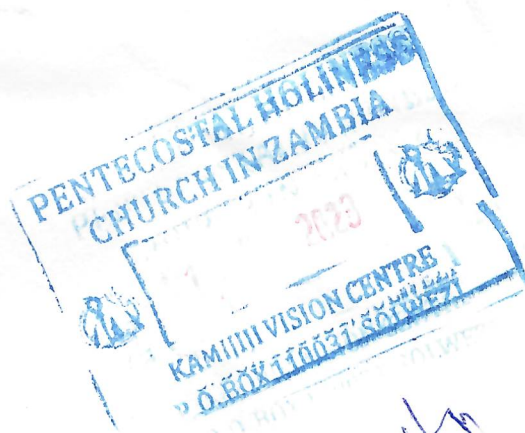 PENTECOSTAL HOLINESS
CHURCH IN ZAMBIA
2023
VISION CENTRE
P.O.BOX 110031 SOLWEZI